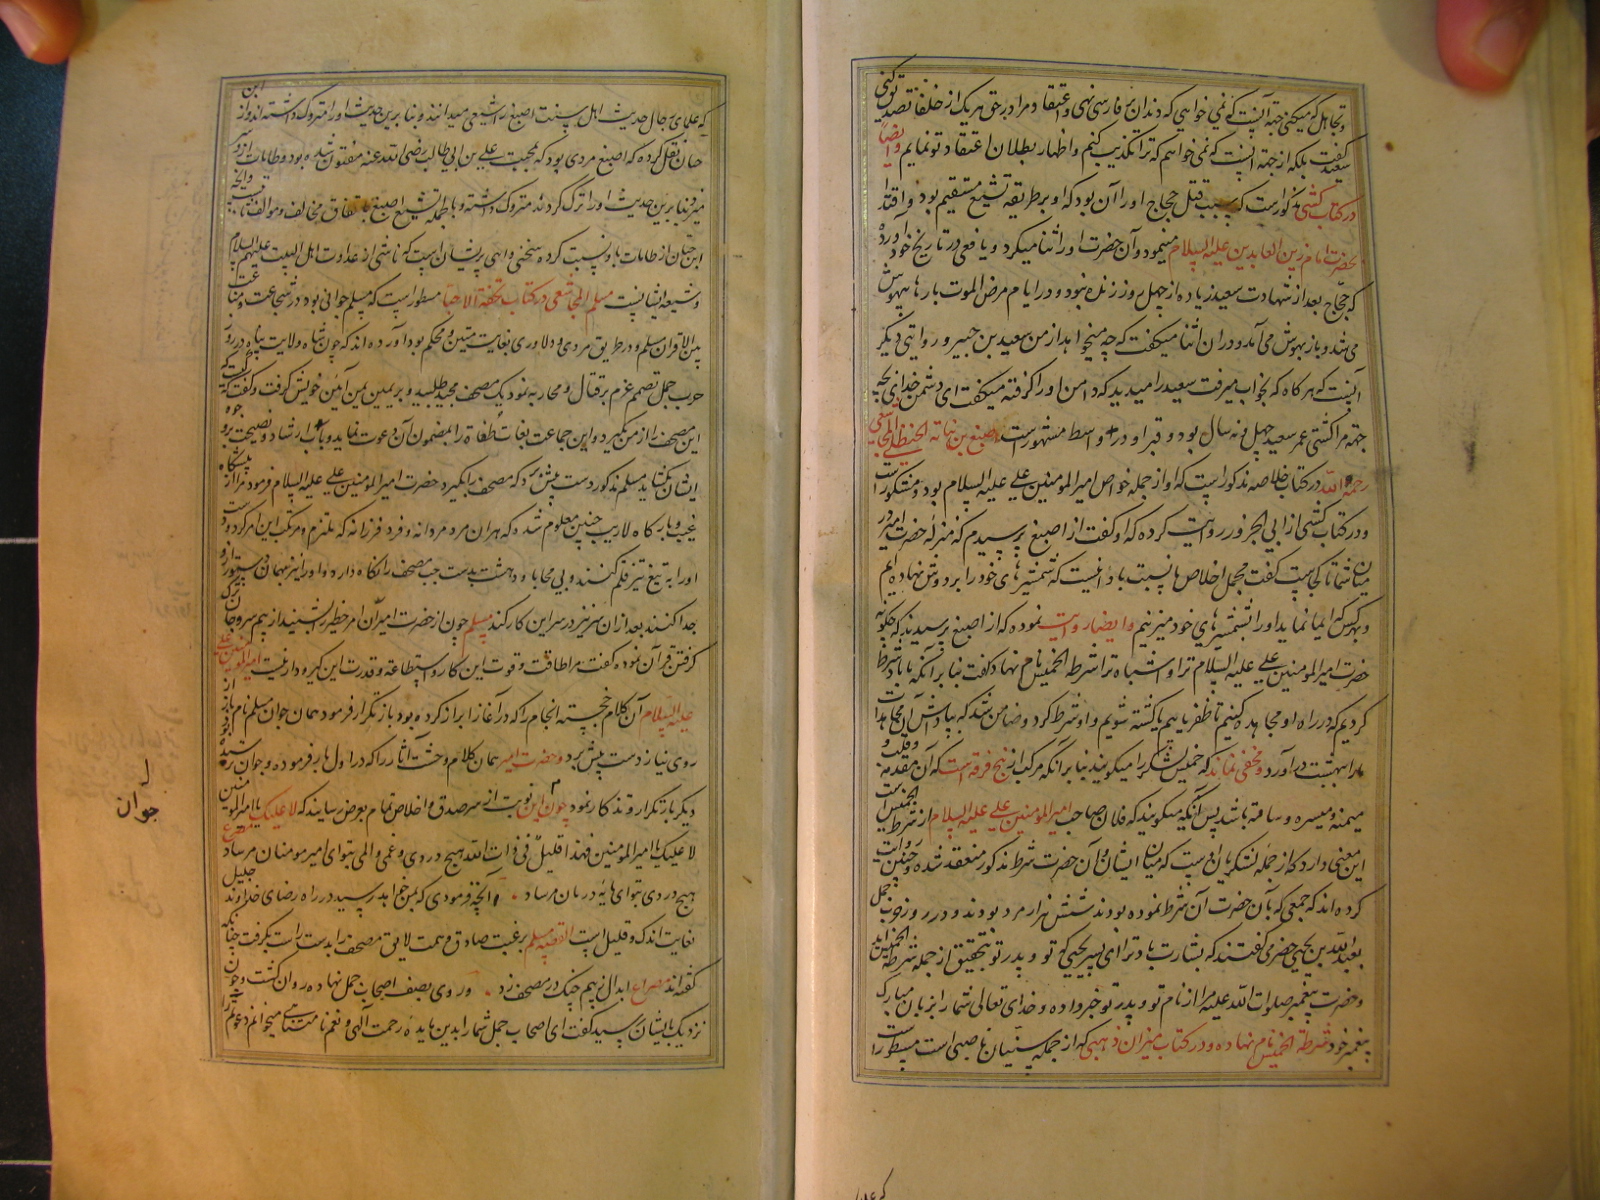 و تجاهل که میکنی جهة آنست که نمی خواهی که دندان بر فارسی نهی و اعتقاد مرا در حق هر یک از خلفا تصدیق کنی
سعید گفت بلکه از جهة آنست که نمی خواهم که ترا تکذیب کنم و اظهار بطلان اعتقاد تو نمایم وایضا
در کتاب کشی مذکور است که سبب قتل حجاج او را آن بود که او بر طریقه تشیع مستقیم بود و اقتدا
بحضرت امام زین العابدین علیه السلام مینمود و آن حضرت او را ثنا میکرد و یافعی در تاریخ خود آورده
که حجاج بعد از شهادت سعید زیاده از چهل روز زنده نبود و در ایام مرض الموت بارها بیهوش
می شد و باز بهوش می آمد و در آن اثنا میگفت که چه میخواهد از من سعید بن جبیر و روایتی دیگر
آنست که هرگاه که بخواب میرفت سعید را میدید که دامن او را گرفته میگفت ای دشمن خدای بچه
جهة مرا کشتی عمر سعید چهل و نه سال بود و قبر او در واسط مشهور است اصبغ بن نباته الحنظلی المجاشعی
رحمه الله در کتاب خلاصه مذکور است که او از جمله خواص امیر المومنین علی علیه السلام بود و مشکور است
و در کتاب کشی از ابی الجرور روایت کرده که او گفت از اصبغ پرسیدم که منزله حضرت امیر در
میان شما تا کجاست گفت مجمل اخلاص ما نسبت باو آنست که شمشیرهای خود را بر دوش نهاده ایم
و بهر کس که ایما نماید او را بشمشیرهای خود میزنیم وایضا روایت نموده که از اصبغ پرسیدند که چگونه
حضرت امیر المومنین علی علیه السلام ترا و اشباه ترا شرطة الخمیس نام نهاد گفت بنا بر آنکه با او شرط
کردیم که در راه او مجاهده کنیم تا ظفر یابیم یا کشته شویم و او شرط کرد و ضامن شد که بپاداش آن مجاهدات
ما را ببهشت درآورد و مخفی نماند که خمیس لشکر را میگویند بنا بر آنکه مرکب از پنج فرقه است که آن مقدمه و قلب و
میمنه و میسره و ساقه باشد پس آنکه میگویند که فلان صاحب امیر المومنین علی علیه السلام از شرطة الخمیس است
این معنی دارد که از جمله لشکریان اوست که میان ایشان و آن حضرت شرط مذکور منعقد شده و چنین روایت
کرده اند که جمعی که بآن حضرت آن شرط نموده بودند شش هزار مرد بودند و در روز حرب جمل
بعبدالله بن یحیی حضرمی گفتند که بشارت باد ترا ای پسر یحیی که تو و پدر تو بتحقیق از جمله شرطة الخمیس اید
و حضرت پیغمبر صلوات الله علیه مرا از نام تو و پدر تو خبر داده و خدای تعالی شما را بزبان مبارک
پیغمبر خود شرطة الخمیس نام نهاده و در کتاب میزان ذهبی که از جمله سنیان ناصبی است مسطور است
که علمای رجال حدیث اهل سنت اصبغ را شیعی میدانند و بنا برین حدیث او را متروک داشته اند و از ابن
حبان نقل کرده که اصبغ مردی بود که بمحبت علی بن ابی طالب رضی الله عنه مفتون شده بود و طامات ازو سر
میزد بنا برین حدیث او را ترک کرده اند متروک داشته و بالجمله تشیع اصبغ باتفاق مخالف و موالف ثابت است و آنچه
ابن حبان از طامات باو نسبت کرده سخنی واهی پریشان است که ناشی از عداوت اهل البیت علیهم السلام
و شیعه ایشانست مسلم المجاشعی در کتاب تحفة الاحبا مسطور است که مسلم جوانی بود در شجاعت و متانت
بین الاقران مسلم و در طریق مردی و دلاوری بغایت متین و محکم بود آورده اند که چون شاه ولایت پناه در روز
حرب جمل تصمیم عزم بر قتال و محاربه نمود یک مصحف مجید طلبید و بر یمین یمن آئین خویش گرفت و گفت کیست که
این مصحف را از من بگیرد و این جماعت بغات طغاة را بمضمون آن دعوت نماید و باب ارشاد و نصیحت بر وجوه
ایشان بگشاید مسلم مذکور دست پیش برد که مصحف را بگیرد حضرت امیر المومنین علی علیه السلام فرمود مرا از پیشگاه
غیب و بارگاه لاریب چنین معلوم شد که هر آن مرد مردانه و فرد فرزانه که ملتزم و مرتکب این امر گردد دست
او را به تیغ تیز قلم کنند و بی محابا و دهشت بدست چپ مصحف را نگاه دارد و او را نیز بهمان دستور از و
جدا کنند بعد از آن سر نیز در سر این کار کند مسلم چون از حضرت امیر آن امر خطیر را شنید از بیم سر و جان ترک
گرفتن قرآن نموده گفت مرا طاقت و قوت این کار و استطاعه و قدرت این گیرودار نیست امیر المومنین علی
علیه السلام آن کلام خجسته انجام را که در آغاز ابراز کرده بود باز تکرار فرمود همان جوان مسلم نام باز از
روی نیاز دست پیش برد و حضرت امیر همان کلام وحشت آثار را که در اول بار فرموده و جوان رسانیده
دیگر بار تکرار و تذکار نمود چون این نوبت از سر صدق و اخلاص تمام بعرض رسانید که لا علیک یا امیر المومنین
لا علیک یا امیر المومنین فهذا قلیل فی ذات الله هیچ دردی و غمی و المی بتو ای امیر مومنان مرساد مصرع
هیچ دردی بتو ای مایه درمان مرساد • و آنچه فرمودی که بمن خواهد رسید در راه رضای خداوند جلیل
بغایت اندک و قلیل است القصه مسلم برغبت صادق و همت لایق مصحف را بدست راست بگرفت چنانکه
گفته اند مصراع ابدال ز بیم چنگ در مصحف زد • و روی بصف اصحاب جمل نهاده روان گشت و چون
نزدیک بایشان رسید گفت ای اصحاب جمل شما را بدین مایده رحمت الهی و نعم نامتناهی میخوانم دعوتم را
جوان